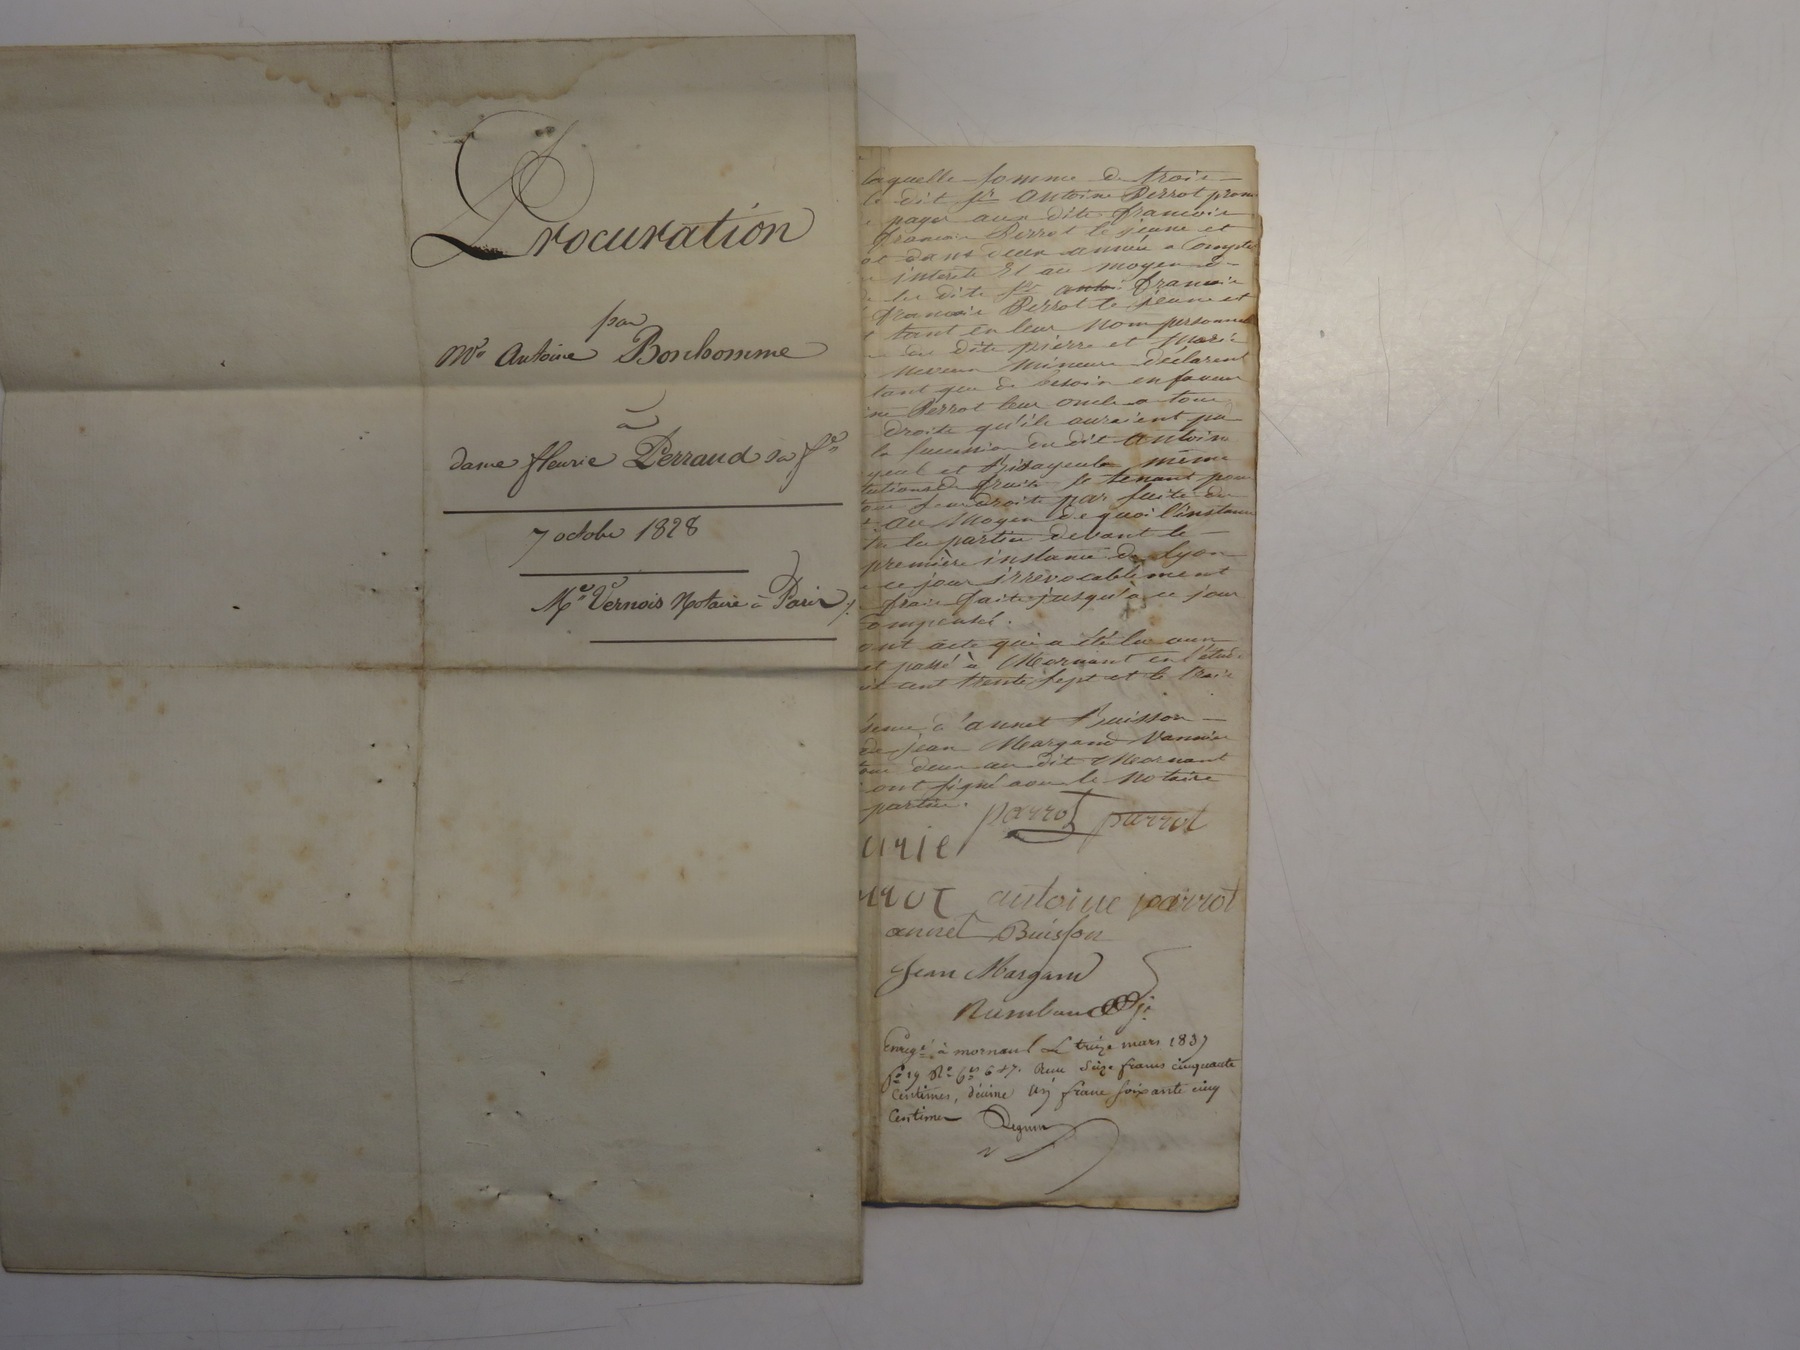 Procuration
par
Mr Antoine Bonhomme
à
dame fleurie Perraud sa fe
7 octobre 1828
Me Vernois Notaire à Paris
laquelle somme de trois
le dit sr Antoine Perrot prom
payer aux dits francois
francois Perrot le jeune et
et dans deux année a Compte
interets Et au moyen
les dits srs francois
francois Perrot le jeune et
tant en leur nom personnel
des dits pierre et marie
neveux mineurs déclarent
tant que de besoin en faveur
Perrot leur oncle a tous
droits qu'ils auraient pu
la succession du dit antoine
ayeul et bisayeule même
fruits se tenant pour
leur droits par suite du
Au Moyen de quoi l'instance
les parties devant le
première instance de Lyon
ce jour irrevocablement
frais faits jusqu'à ce jour
compensés.
dont acte qui a été lu aux
et passé à Mornant en l'étude
cent trente sept et le trois
d'annet Buisson
de jean Margand Vannier
tous deux au dit Mornant
ont signé avec le Notaire
parties.
Parrot parrot
urie
rrot antoine parrot
annet Buisson
Jean Margand
Enregé à mornant Le treize mars 1837
fo 19 Ro cs 6 et 7. Reçu Seize francs cinquante
Centimes, décime un franc soixante cinq
Centimes